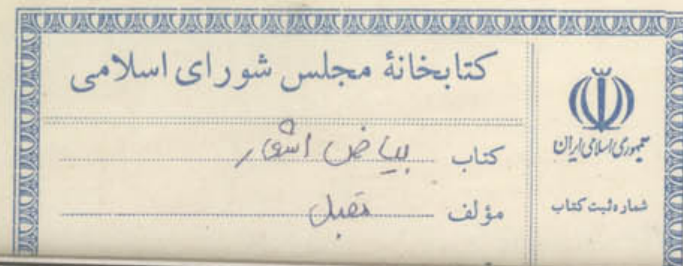 کتابخانهٔ مجلس شورای اسلامی
کتاب بیاض اشعار
مؤلف مقبل
جمهوری اسلامی ایران
شماره ثبت کتاب